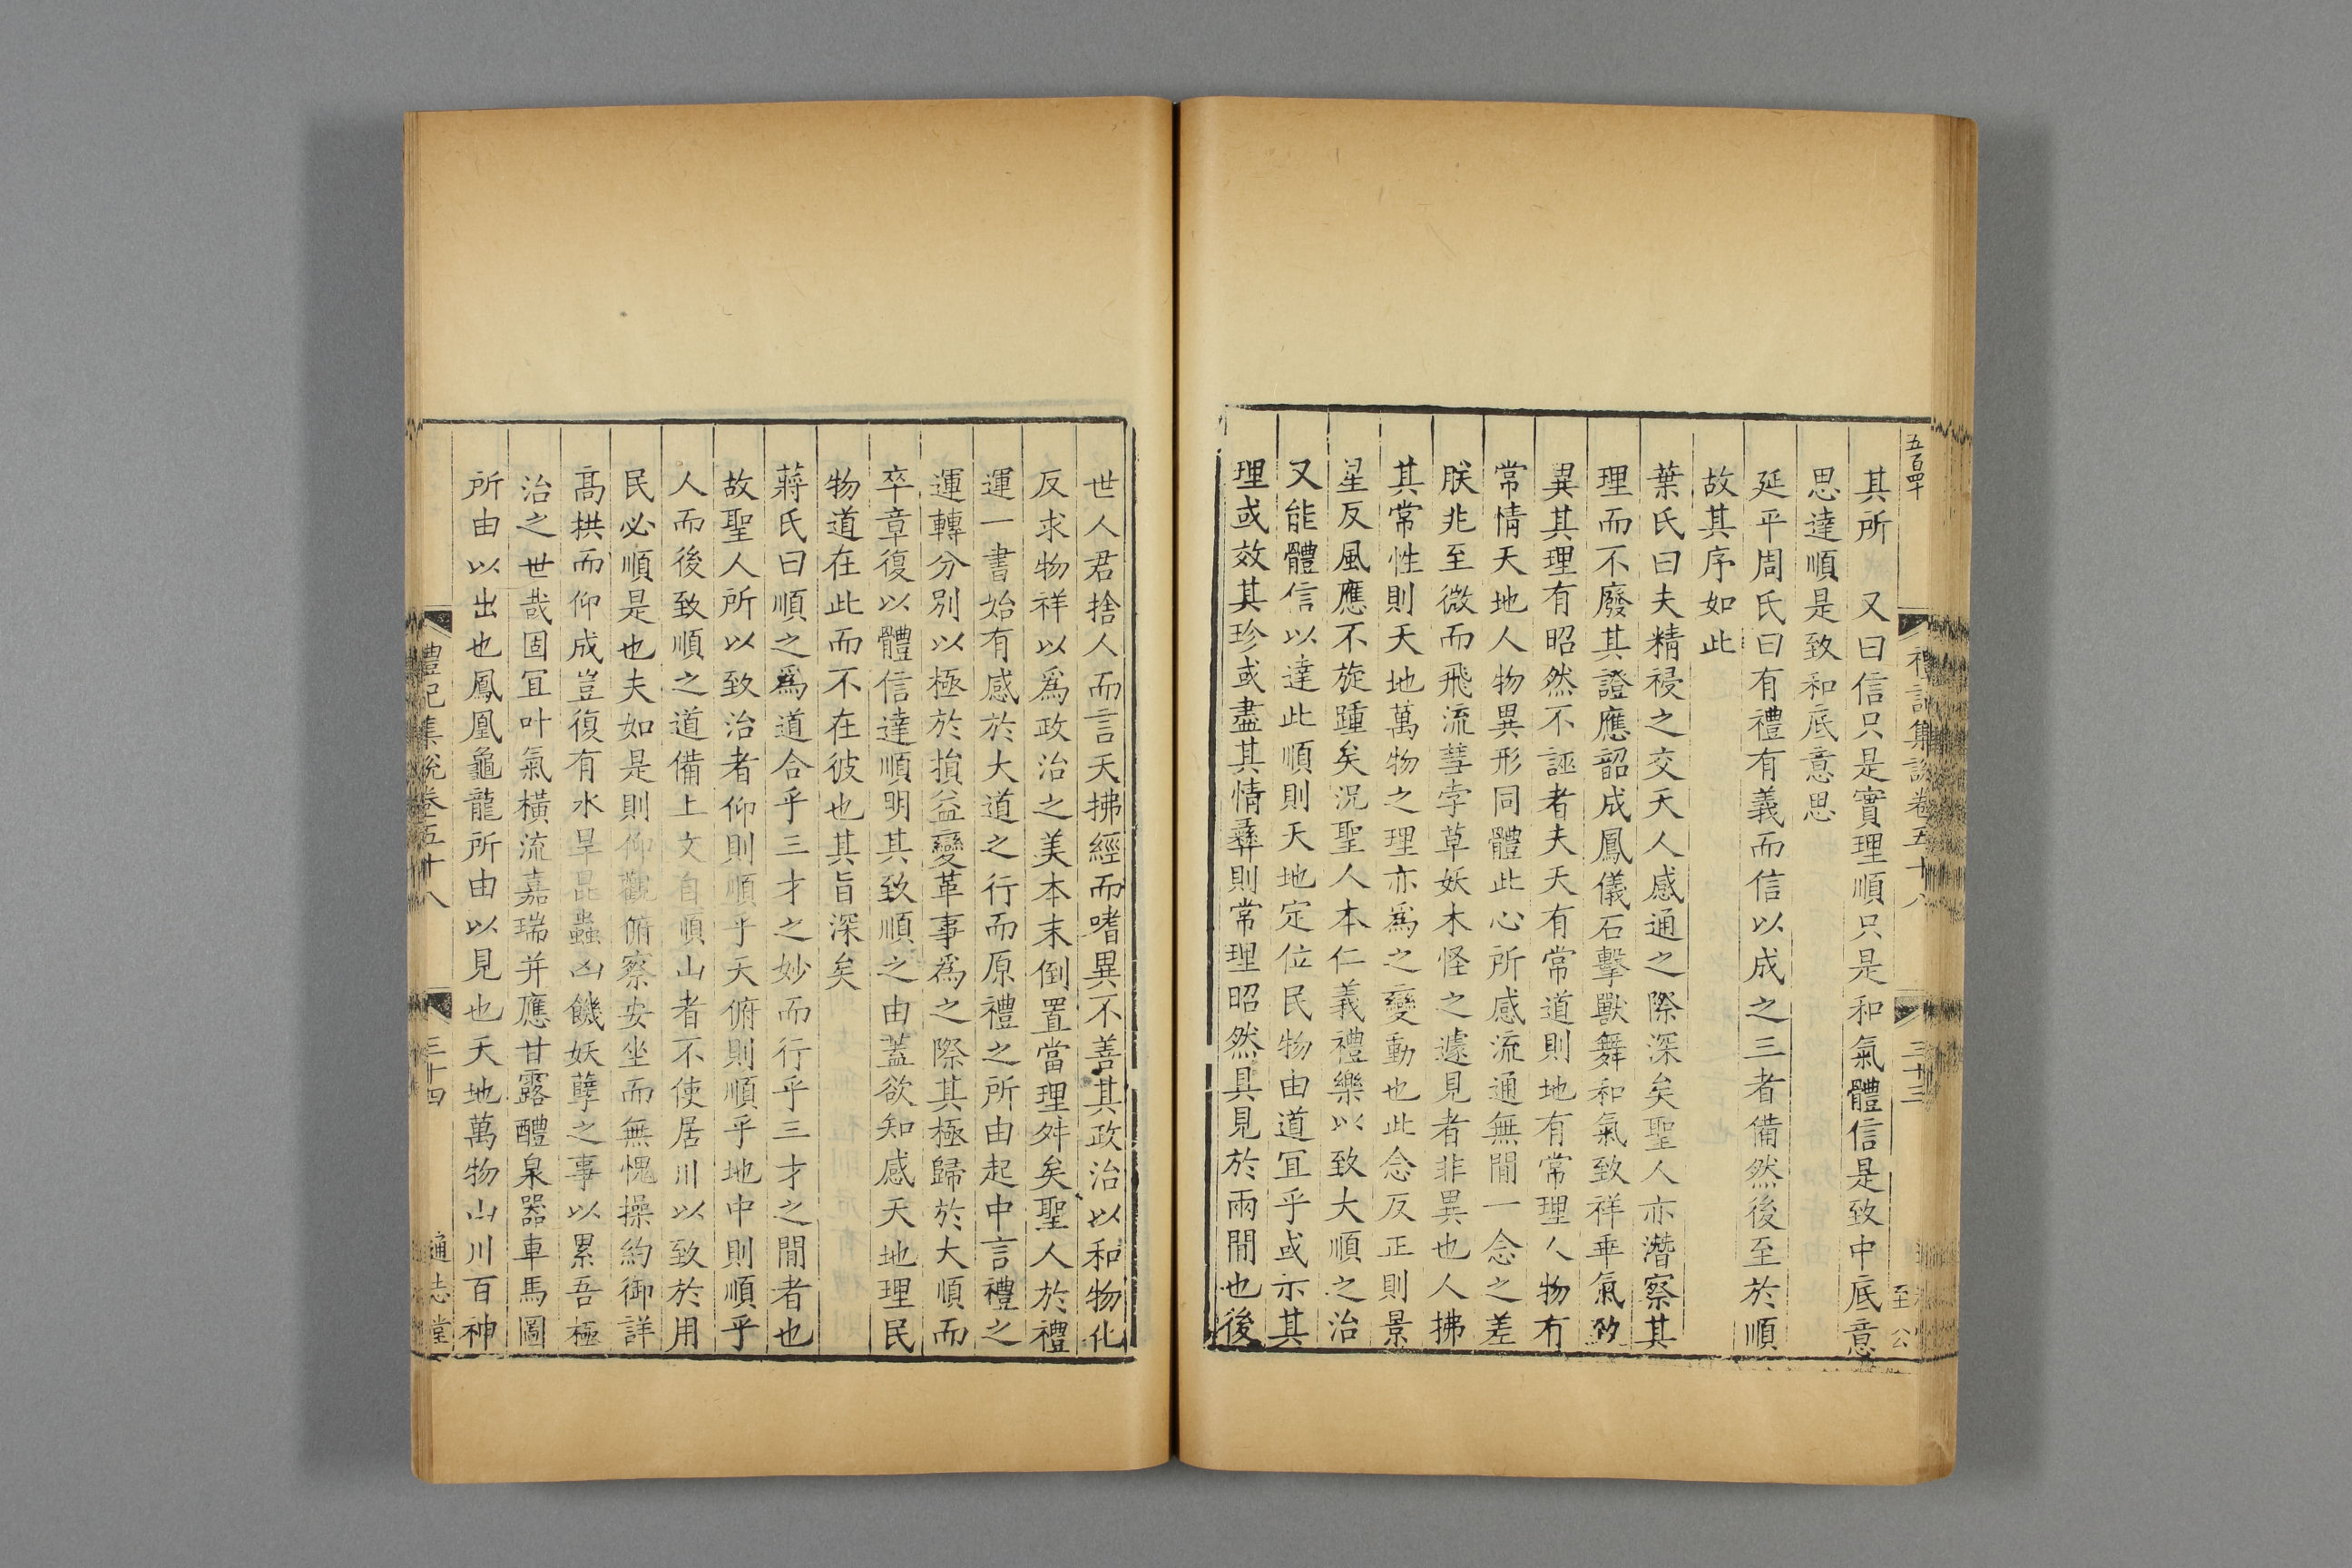 五百四十
禮記集說卷五十八
三十三
至公
其所　又曰信只是實理順只是和氣體信是致中底意
思達順是致和底意思
延平周氏曰有禮有義而信以成之三者備然後至於順
故其序如此
葉氏曰夫精祲之交天人感通之際深矣聖人亦潛察其
理而不廢其證應韶成鳳儀石擊獸舞和氣致祥乖氣致
異其理有昭然不誣者夫天有常道則地有常理人物有
常情天地人物異形同體此心所感流通無間一念之差
朕兆至微而飛流彗孛草妖木怪之遽見者非異也人拂
其常性則天地萬物之理亦爲之變動也此念反正則景
星反風應不旋踵矣況聖人本仁義禮樂以致大順之治
又能體信以達此順則天地定位民物由道宜乎或示其
理或效其珍或盡其情彝則常理昭然具見於兩間也後
世人君捨人而言天拂經而嗜異不善其政治以和物化
反求物祥以爲政治之美本末倒置當理舛矣聖人於禮
運一書始有感於大道之行而原禮之所由起中言禮之
運轉分別以極於損益變革事爲之際其極歸於大順而
卒章復以體信達順明其致順之由蓋欲知感天地理民
物道在此而不在彼也其旨深矣
蔣氏曰順之爲道合乎三才之妙而行乎三才之閒者也
故聖人所以致治者仰則順乎天俯則順乎地中則順乎
人而後致順之道備上文自順山者不使居川以致於用
民必順是也夫如是則仰觀俯察安坐而無愧操約御詳
高拱而仰成豈復有水旱昆蟲凶饑妖孽之事以累吾極
治之世哉固宜叶氣橫流嘉瑞并應甘露醴泉器車馬圖
所由以出也鳳凰龜龍所由以見也天地萬物山川百神
禮記集說卷五十八
三十四
通志堂